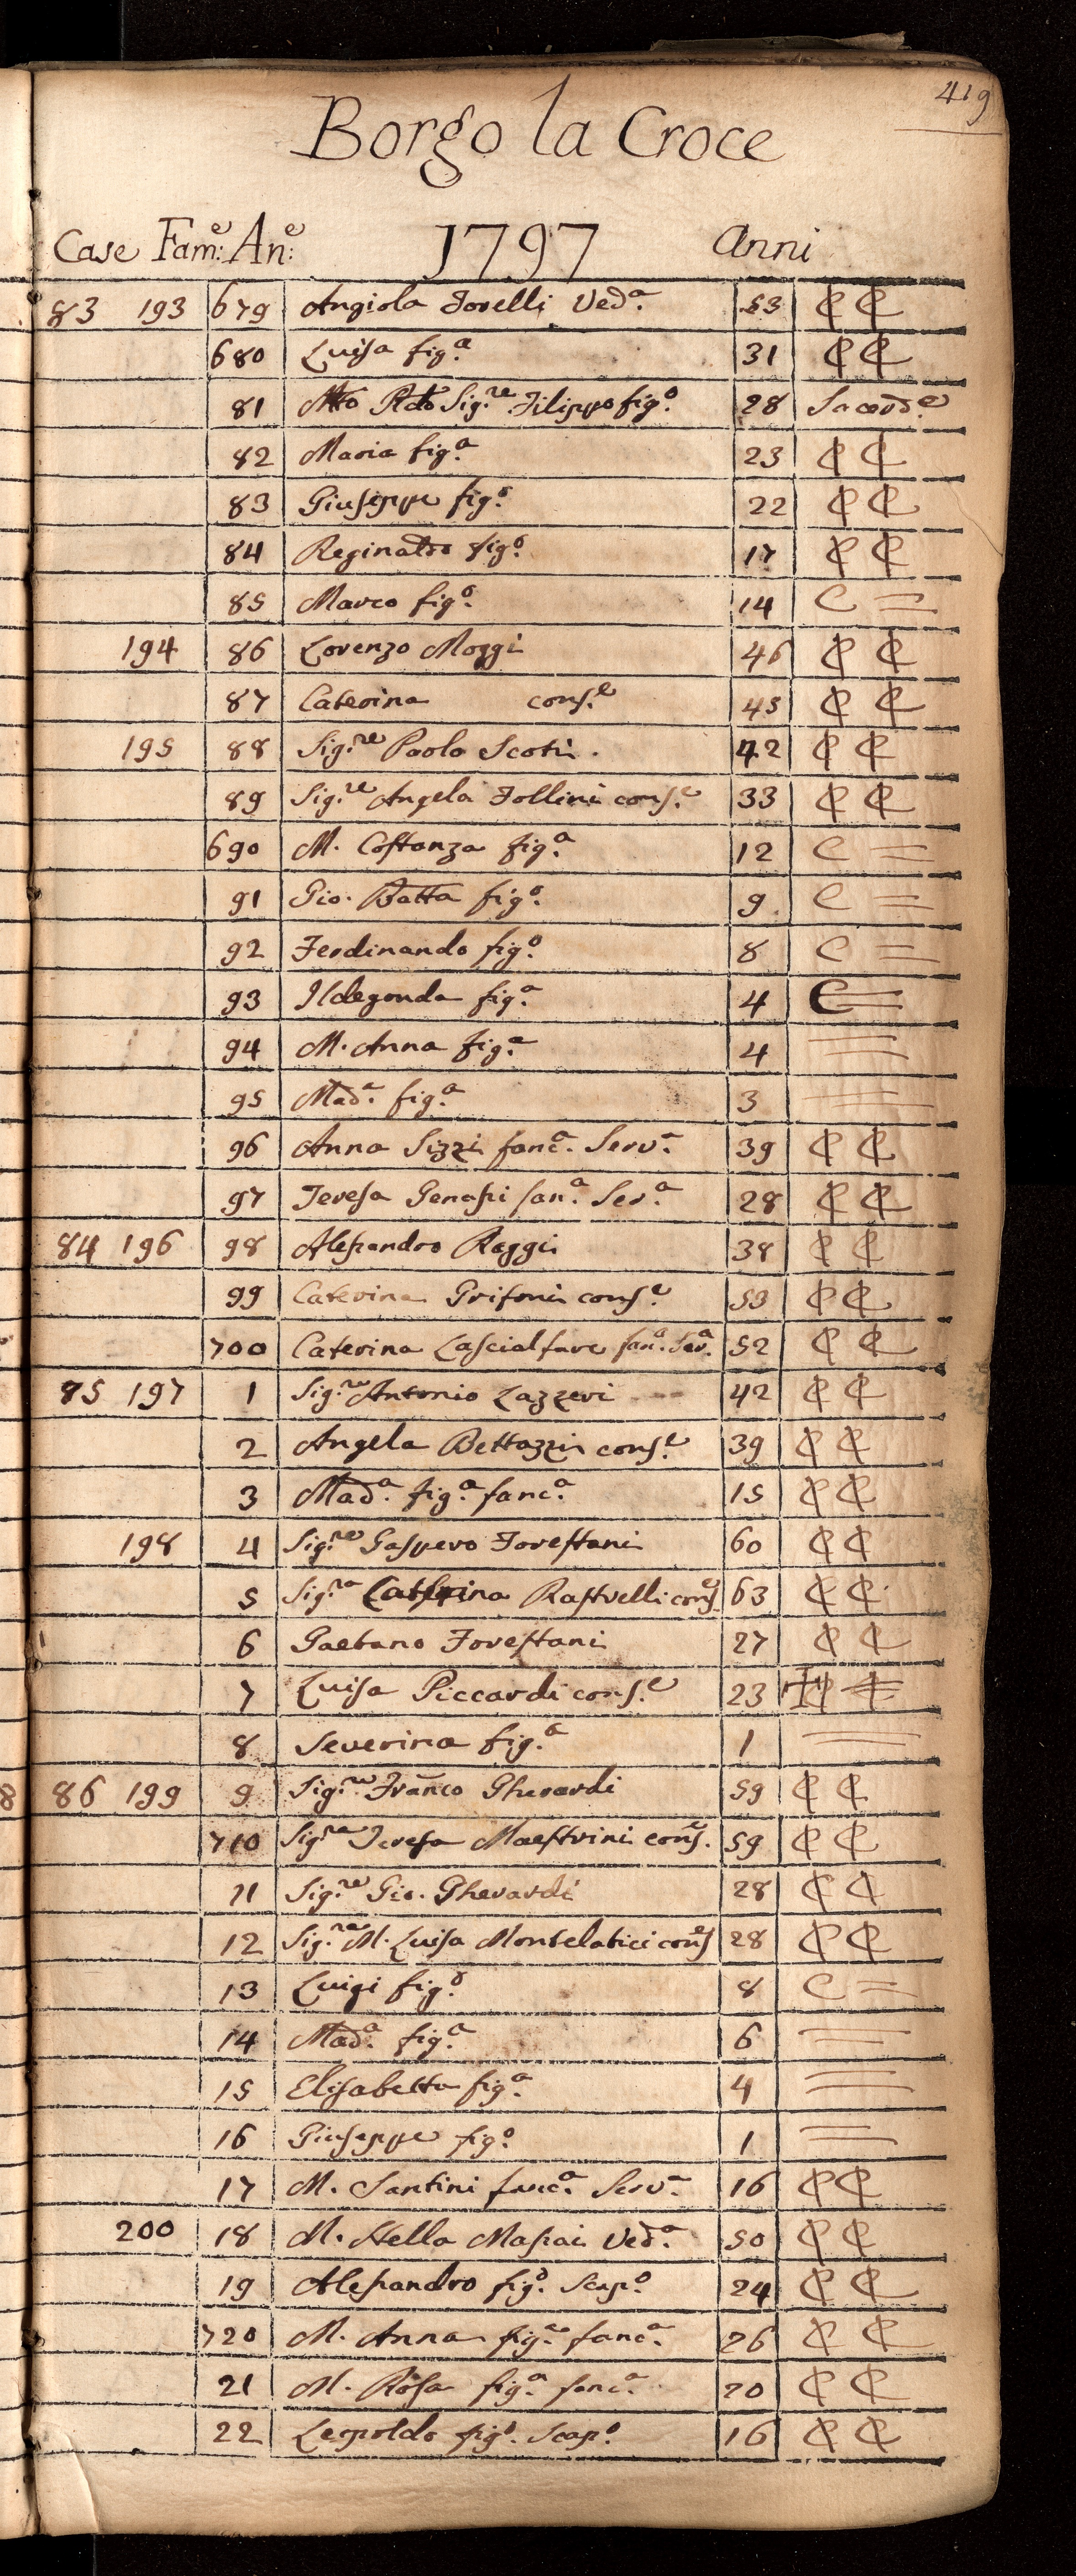 419
Borgo la Croce
Case Fam:e An:e 1797 Anni
83 193 679 Angiola Forelli Ved.a 53 C C
680 Luisa fig.a 31 C C
81 Mto Rdo Sig.re Filippo fig.o 28 Sacerd.e
82 Maria fig.a 23 C C
83 Giuseppe fig.o 22 C C
84 Reginaldo fig.o 17 C C
85 Marco fig.o 14 C =
194 86 Lorenzo Moggi 46 C C
87 Caterina cons.e 45 C C
195 88 Sig.re Paolo Scoti . 42 C C
89 Sig.re Angela Follini cons.e 33 C C
690 M. Costanza fig.a 12 C =
91 Gio. Batta fig.o 9 C =
92 Ferdinando fig.o 8 C =
93 Ildegonda fig.a 4 C =
94 M. Anna fig.a 4
95 Mad.a fig.a 3
96 Anna Sizzi fanc.a Serv.a 39 C C
97 Teresa Genassi fan.a Ser.a 28 C C
84 196 98 Alessandro Raggi 38 C C
99 Caterina Grifoni cons.e 53 C C
700 Caterina Lascialfare fan.a Ser.a 52 C C
85 197 1 Sig.re Antonio Lazzeri 42 C C
2 Angela Bettazzi cons.e 39 C C
3 Mad.a fig.a fanc.a 15 C C
198 4 Sig.re Gaspero Forestani 60 C C
5 Sig.ra Caterina Rastrelli cons.e 63 C C
6 Gaetano Forestani 27 C C
7 Luisa Piccardi cons.e 23
8 Severina fig.a 1
86 199 9 Sig.re Franco Gherardi 59 C C
710 Sig.ra Teresa Maestrini cons.e 59 C C
11 Sig.re Gio. Gherardi 28 C C
12 Sig.ra M. Luisa Montelatici cons.e 28 C C
13 Luigi fig.o 8 C =
14 Mad.a fig.a 6
15 Elisabetta fig.a 4
16 Giuseppe fig.o 1
17 M. Santini fanc.a Serv.a 16 C C
200 18 M. Stella Massai Ved.a 50 C C
19 Alessandro fig.o Scap.o 24 C C
720 M. Anna fig.a fanc.a 26 C C
21 M. Rosa fig.a fanc.a 20 C C
22 Leopoldo fig.o Scap.o 16 C C